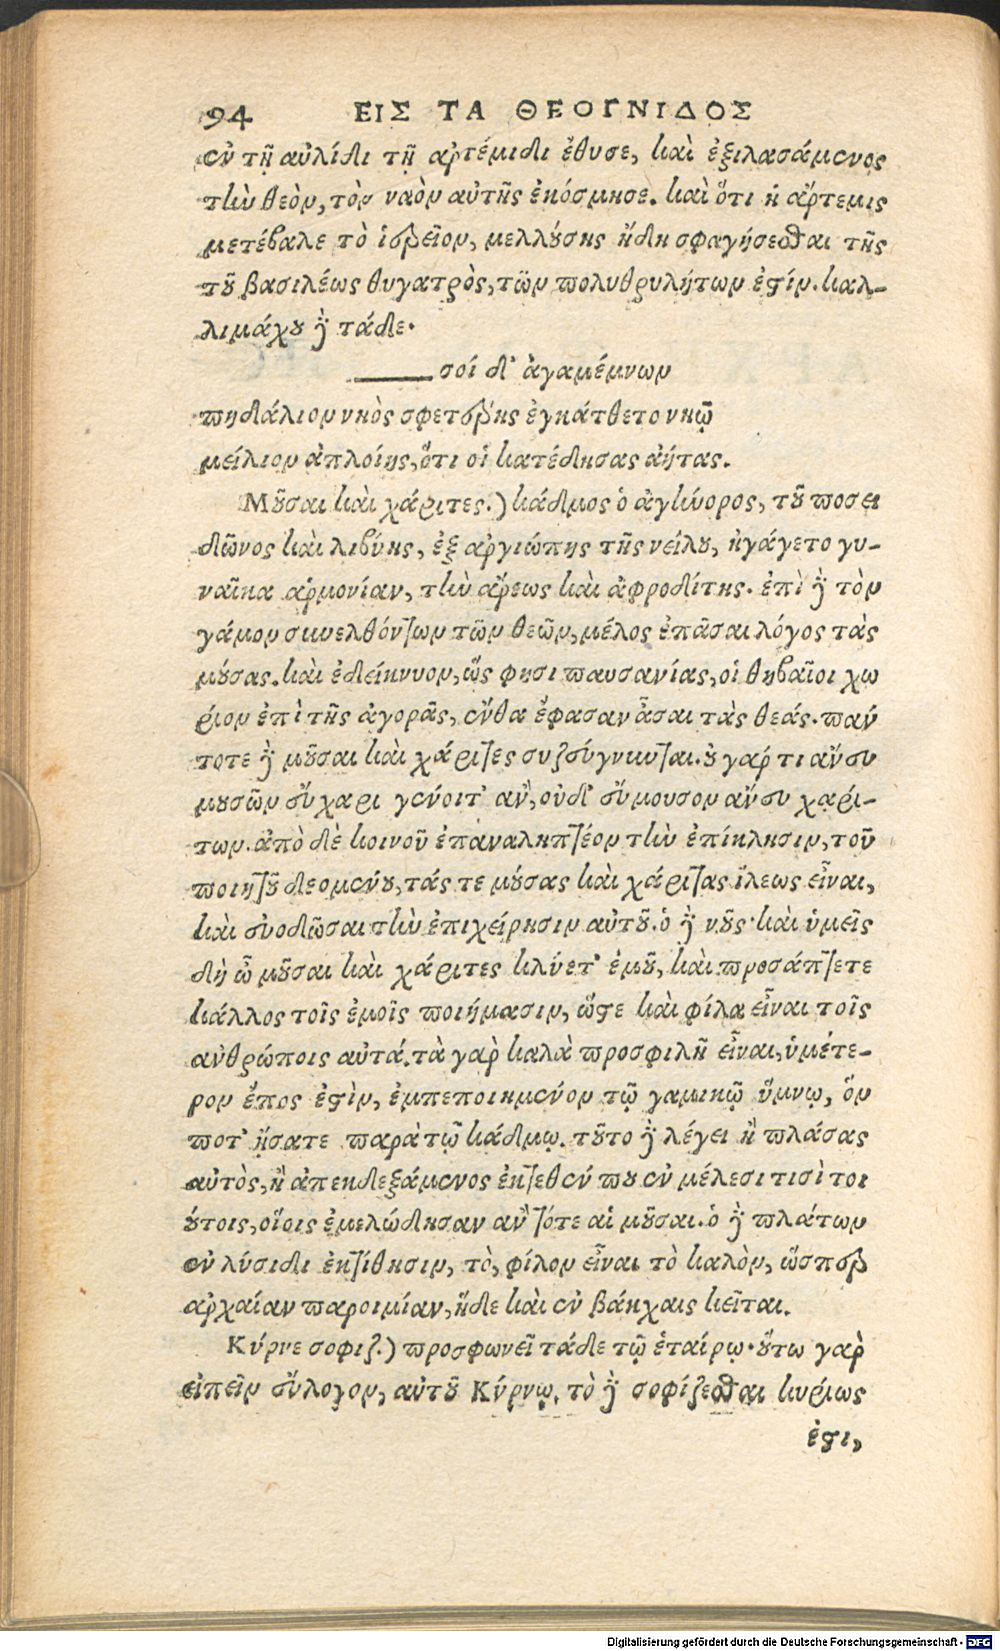 94 ΕΙΣ ΤΑ ΘΕΟΓΝΙΔΟΣ
ἐν τῇ αὐλίδι τῇ ἀρτέμιδι ἔθυσε, καὶ ἐξιλασάμενος
τὴν θεὸν, τὸν ναὸν αὐτῆς ἐκόσμησε. καὶ ὅτι ἡ ἄρτεμις
μετέβαλε τὸ ἱερεῖον, μελλούσης ἤδη σφαγήσεσθαι τῆς
τοῦ βασιλέως θυγατρὸς, τῶν πολυθρυλήτων ἐστίν. καλ-
λιμάχου δὲ τάδε.
σοί δ' ἀγαμέμνων
πηδάλιον νηὸς σφετέρης ἐγκάτθετο νηῷ
μείλιον ἀπλοίης, ὅτι οἱ κατέδησας ἀήτας.
Μοῦσαι καὶ χάριτες.) κάδμος ὁ ἀγήνορος, τοῦ ποσει
δῶνος καὶ λιβύης, ἐξ ἀργιώπης τῆς νείλου, ἠγάγετο γυ-
ναῖκα ἁρμονίαν, τὴν ἄρεως καὶ ἀφροδίτης. ἐπὶ δὲ τὸν
γάμον συνελθόντων τῶν θεῶν, μέλος ἐπᾶσαι λόγος τὰς
μούσας. καὶ ἐδείκνυον, ὥς φησι παυσανίας, οἱ θηβαῖοι χω
ρίον ἐπὶ τῆς ἀγορᾶς, ἔνθα ἔφασαν ἆσαι τὰς θεάς. πάν
τοτε δὲ μοῦσαι καὶ χάριτες συζεύγνυνται. οὐ γάρ τι ἄνευ
μουσῶν εὔχαρι γένοιτ' ἄν, οὐδ' εὔμουσον ἄνευ χαρί-
των. ἀπὸ δὲ κοινοῦ ἐπαναληπτέον τὴν ἐπίκλησιν, τοῦ
ποιητοῦ δεομένου, τάς τε μούσας καὶ χάριτας ἵλεως εἶναι,
καὶ εὐοδῶσαι τὴν ἐπιχείρησιν αὐτοῦ. ὁ δὲ νοῦς· καὶ ὑμεῖς
δὴ ὦ μοῦσαι καὶ χάριτες κλύετ' ἐμοῦ, καὶ προσάπτετε
κάλλος τοῖς ἐμοῖς ποιήμασιν, ὥστε καὶ φίλα εἶναι τοῖς
ἀνθρώποις αὐτά. τὰ γὰρ καλὰ προσφιλῆ εἶναι, ὑμέτε-
ρον ἔπος ἐστὶν, ἐμπεποιημένον τῷ γαμικῷ ὕμνῳ, ὅν
ποτ' ᾔσατε παρὰ τῷ κάδμῳ. τοῦτο δὲ λέγει ἢ πλάσας
αὐτὸς, ἢ ἀπεκδεξάμενος ἐκτεθέν που ἐν μέλεσι τισὶ τοι
ούτοις, οἵοις ἐμελώδησαν ἄν τότε αἱ μοῦσαι. ὁ δὲ πλάτων
ἐν λύσιδι ἐκτίθησιν, τὸ, φίλον εἶναι τὸ καλὸν, ὥσπερ
ἀρχαίαν παροιμίαν, ἥδε καὶ ἐν βάκχαις κεῖται.
Κύρνε σοφιζ.) προσφωνεῖ τάδε τῷ ἑταίρῳ· οὕτω γὰρ
εἰπεῖν εὔλογον, αὐτοῦ Κύρνῳ. τὸ δὲ σοφίζεσθαι κυρίως
ἐστι,
Digitalisierung gefördert durch die Deutsche Forschungsgemeinschaft - DFG